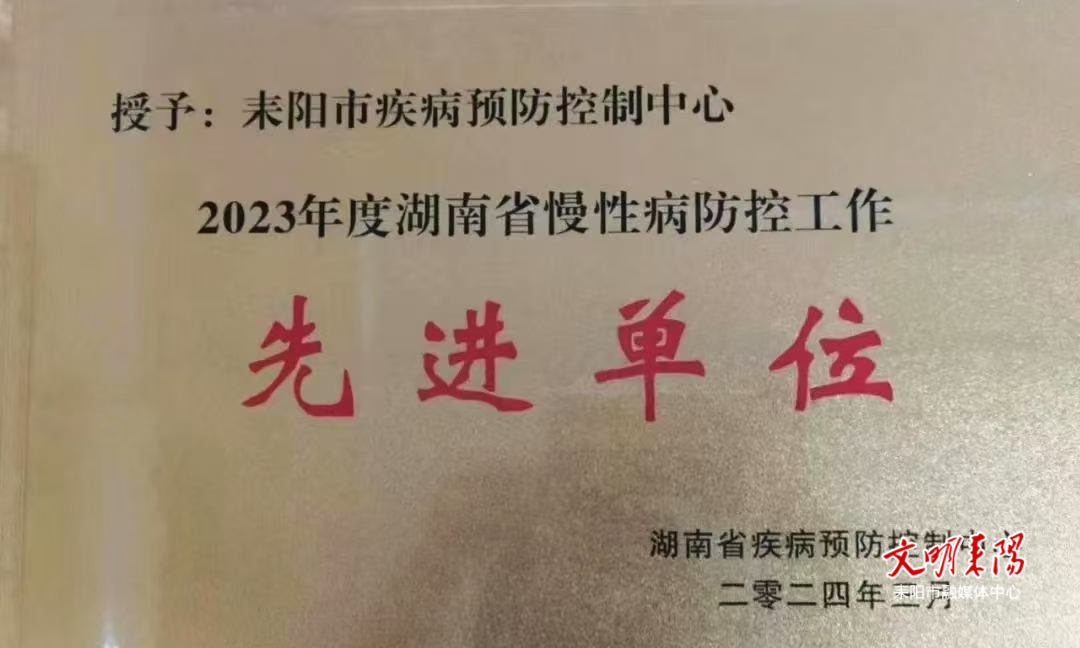 授予：耒阳市疾病预防控制中心
2023年度湖南省慢性病防控工作
先进单位
湖南省疾病预防控制中心
二零二四年三月
文明耒阳
耒阳市融媒体中心